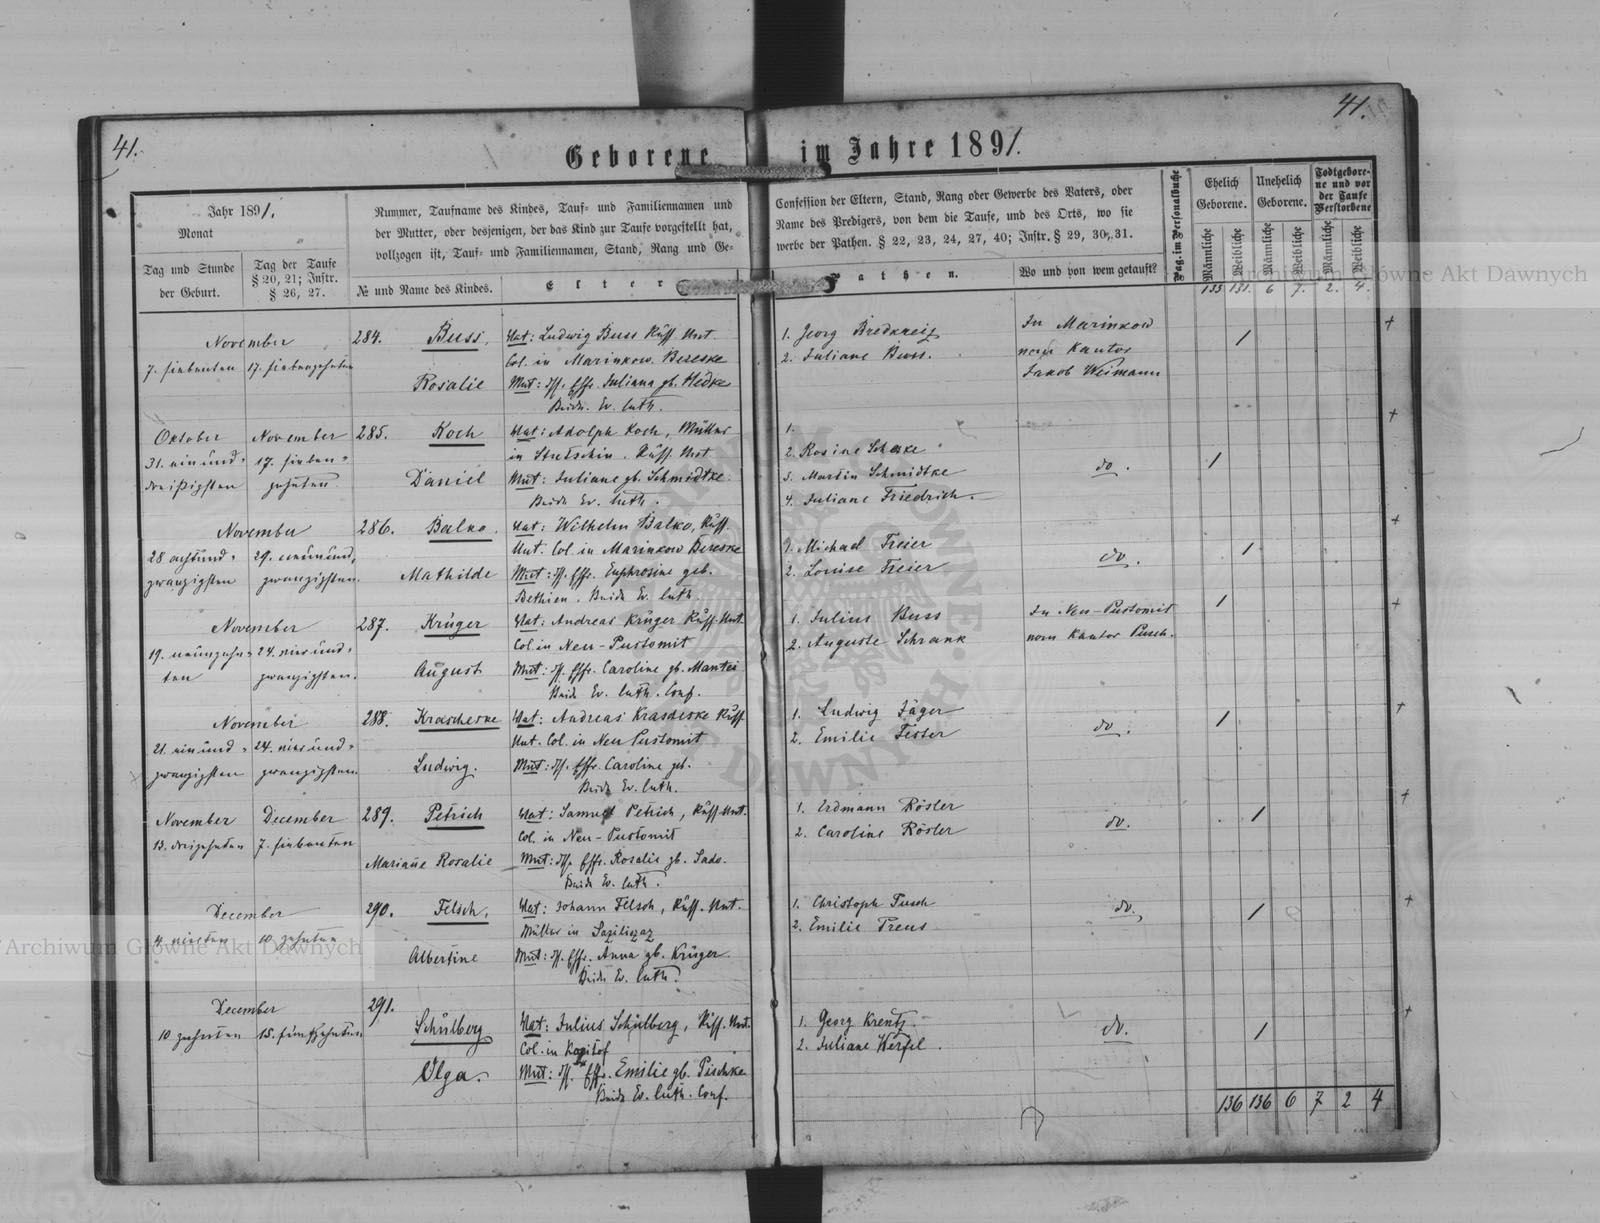 41.
41.
Geborene im Jahre 1891.
Jahr 1891.
Monat
Tag und Stunde
der Geburt.
Tag der Taufe
§ 20, 21; Instr.
§ 26, 27.
Nummer, Taufname des Kindes, Tauf- und Familiennamen und
der Mutter, oder desjenigen, der das Kind zur Taufe vorgestellt hat,
vollzogen ist, Tauf- und Familiennamen, Stand, Rang und Ge-
№ und Name des Kindes.
Elter
Confession der Eltern, Stand, Rang oder Gewerbe des Vaters, oder
Name des Predigers, von dem die Taufe, und des Orts, wo sie
werbe der Pathen. § 22, 23, 24, 27, 40; Instr. § 29, 30, 31.
Pathen.
Wo und von wem getauft?
Pag. im Personalbuche
Ehelich
Geborene.
Unehelich
Geborene.
Todtgebore-
ne und vor
der Taufe
Verstorbene
Männliche
Weibliche
Männliche
Weibliche
Männliche
Weibliche
133 131. 6 7. 2. 4.
November
7. siebenten 17. siebenzehnten
284. Buss,
Rosalie
Vat: Ludwig Buss Russ. Unt.
Col. in Marinkow Bereske
Mut: dss. Ehfr. Juliana gb. Hedke
Beide Ev. luth.
1. Georg Bredkreiz
2. Juliane Buss.
In Marinkow
vom Kantor
Jakob Weimann
1
+
Oktober November
31. einund- 17. sieben-
dreißigsten zehnten
285. Koch
Daniel
Vat: Adolph Koch, Müller
in Russ. Unt.
Mut: Juliane gb. Schmidtke
Beide Ev. luth.
1.
2. Rosine
3. Martin Schmidtke
4. Juliane Friedrich.
do.
1
+
November
28 achtund- 29. neunund-
zwanzigsten zwanzigsten
286. Balko.
Mathilde
Vat: Wilhelm Balko, Russ.
Unt. Col. in Marinkow Bereske
Mut: dss. Ehfr. Euphrosine geb.
Bethien. Beide Ev. luth
1. Michael Freier
2. Louise Freier
do.
1
+
November
19. neunzehn- 24. vierund-
ten zwanzigsten.
287. Krüger
August
Vat: Andreas Krüger Russ. Unt.
Col. in Neu-Pustomit
Mut: dss. Ehfr. Caroline gb. Mantei
Beide Ev. luth. Conf.
1. Julius Buss
2. Auguste Schrank
In Neu-Pustomit
vom Kantor Pusch.
1
+
November
21. einund- 24. vierund-
zwanzigsten zwanzigsten
288. Krascheske
Ludwig.
Vat: Andreas Krasdeske Russ.
Unt. Col. in Neu Pustomit
Mut: dss. Ehfr. Caroline gb.
Beide Ev. luth.
1. Ludwig Jäger
2. Emilie
do.
1
+
November December
13. dreizehnten 7. siebenten
289. Petrich
Mariane Rosalie
Vat: Samuel Petrich, Russ. Unt.
Col. in Neu-Pustomit
Mut: dss. Ehfr. Rosalie gb. Sado.
Beide Ev. luth.
1. Erdmann Rösler
2. Caroline Rösler
do.
1
+
December
4 vierten 10 zehnten
290. Felsch,
Albertine
Vat: Johann Felsch, Russ. Unt.
Müller in
Mut: dss. Ehfr. Anna gb. Krüger
Beide Ev. luth.
1. Christoph Pusch
2. Emilie Preus
do.
1
+
December
10 zehnten 15. fünfzehnten
291.
Schülberg
Olga.
Vat: Julius Schülberg, Russ. Unt.
Col. in
Mut: dss. Ehfr. Emilie gb. Pischke
Beide Ev. luth. Conf.
1. Georg Krentz.
2. Juliane Werfel.
do.
1
+
136 136 6 7 2 4
Archiwum Główne Akt Dawnych
Archiwum Główne Akt Dawnych